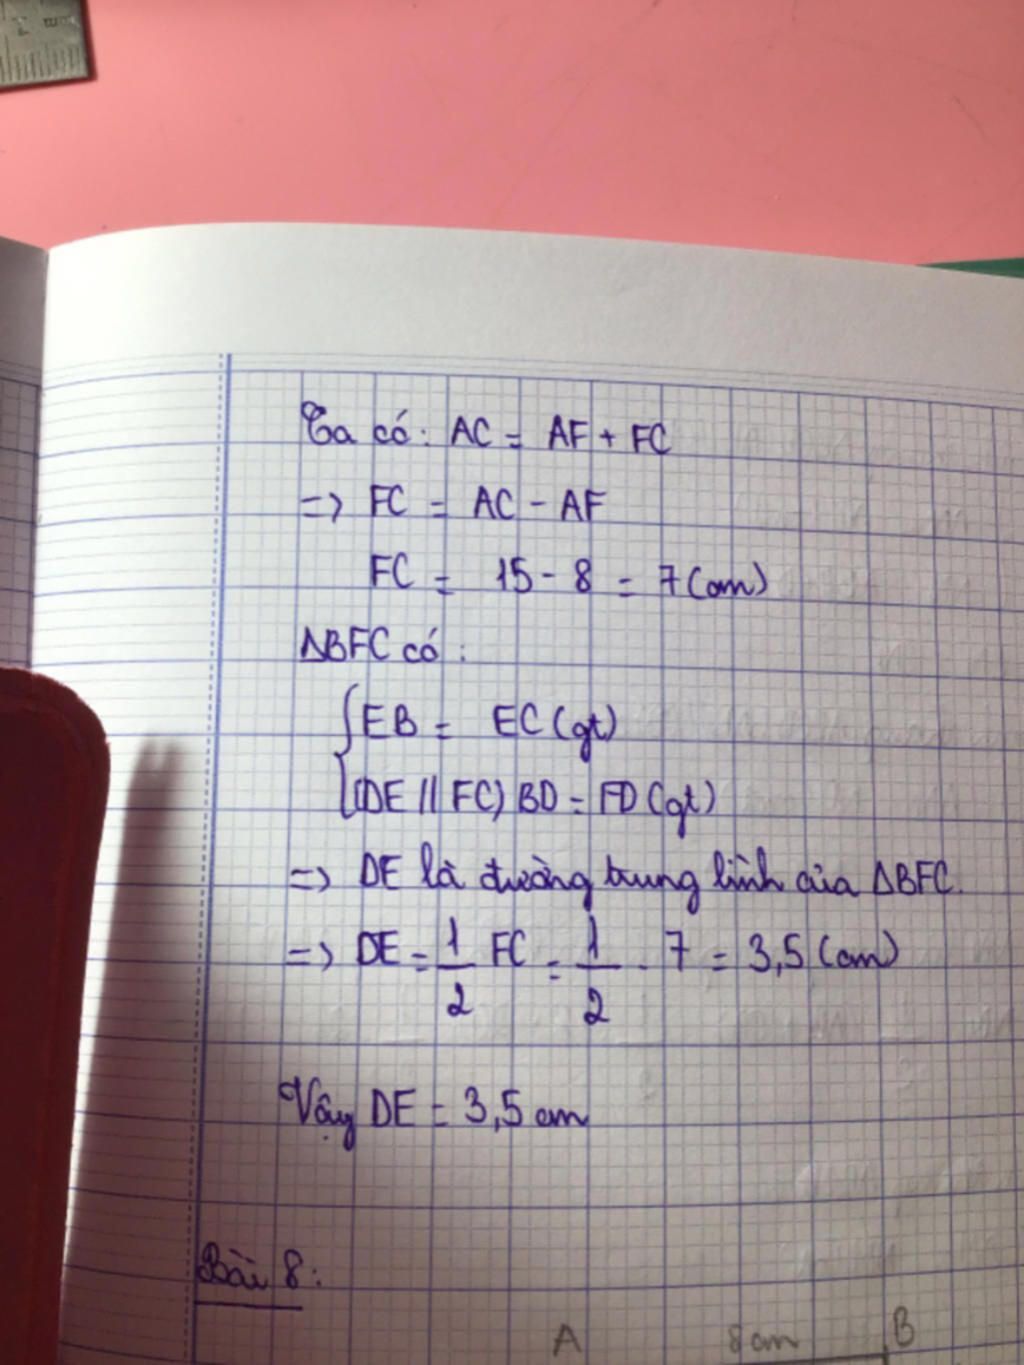 Ta có: AC = AF + FC
=> FC = AC - AF
FC = 15 - 8 = 7 (cm)
ΔBFC có:
{ EB = EC (gt)
(DE // FC) BD = FD (gt)
=> DE là đường trung bình của ΔBFC.
=> DE = 1/2 FC = 1/2 . 7 = 3,5 (cm)
Vậy DE = 3,5 cm
Bài 8:
A 8cm B